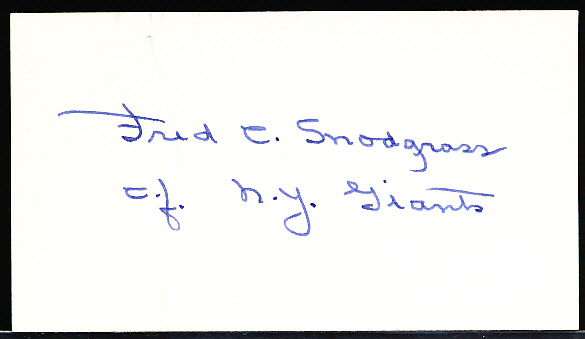 Fred C. Snodgrass
c.f. N.Y. Giants